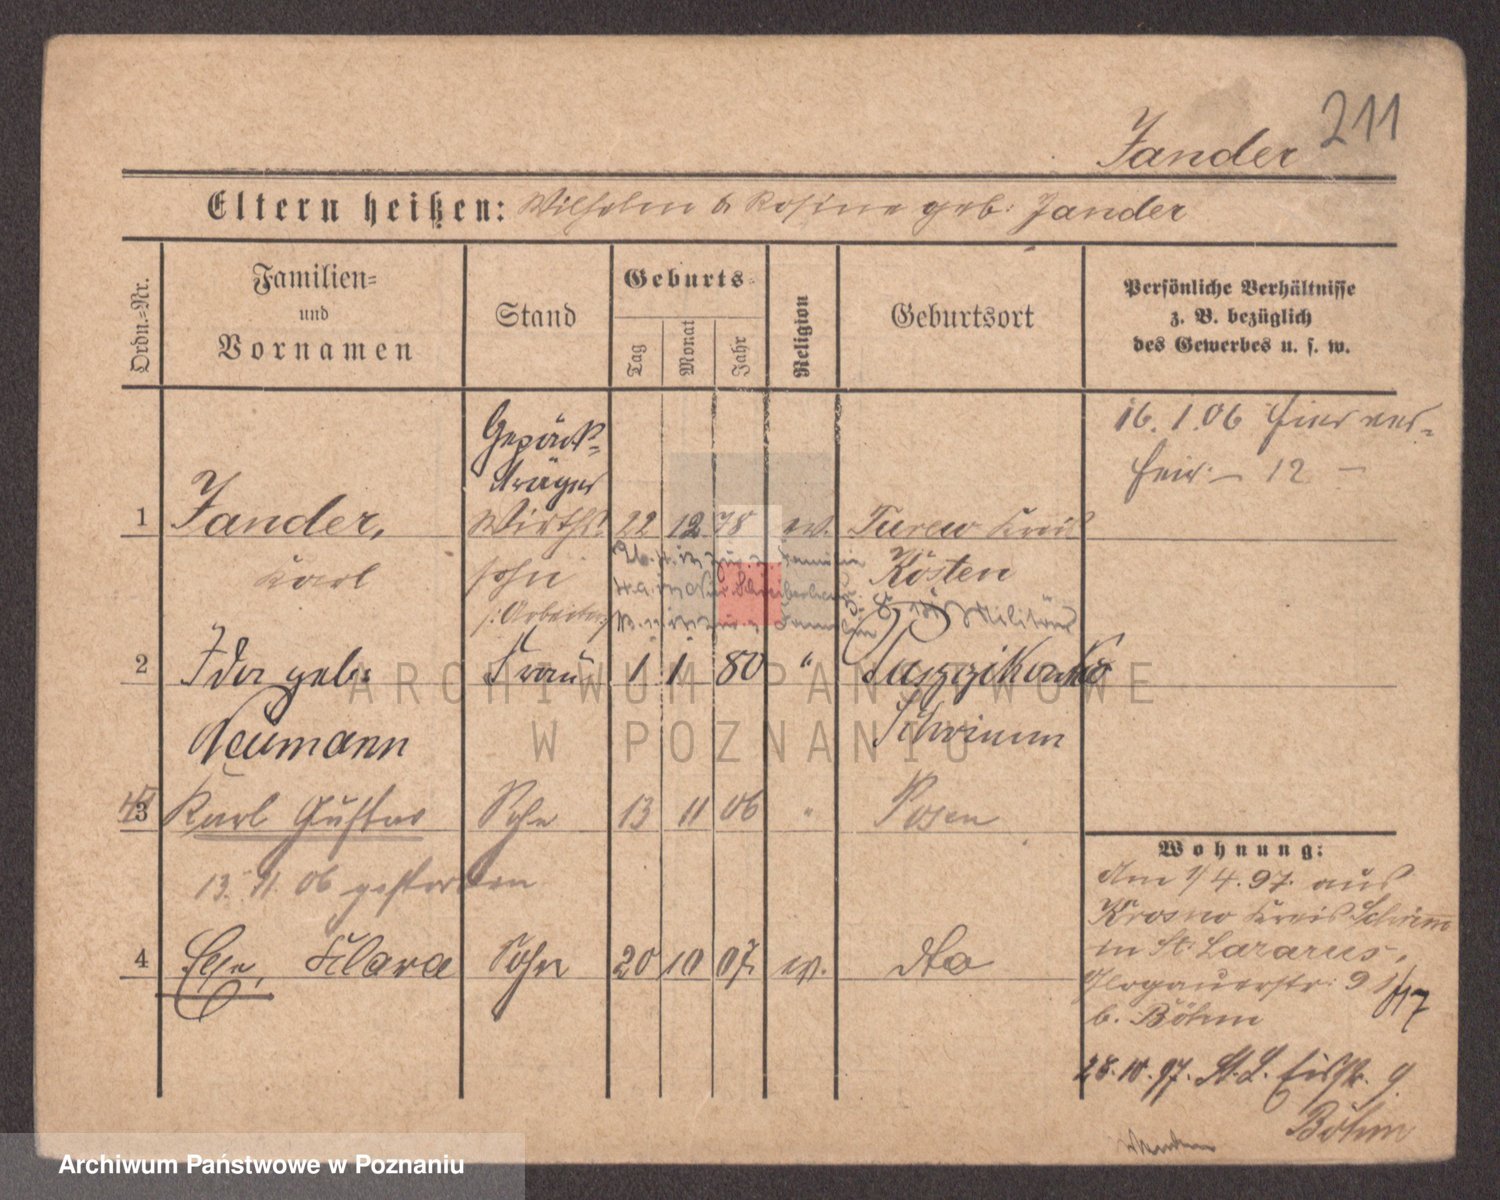 211
Jander
Eltern heißen: Wilhelm & Rosine geb. Jander
Ordn.-Nr.
Familien-
und
Vornamen
Stand
Geburts-
Tag
Monat
Jahr
Religion
Geburtsort
Persönliche Verhältnisse
z. B. bezüglich
des Gewerbes u. s. w.
16. 1. 06 hier ver-
heir. — 12 —
Gepäck-
träger
1 Jander, Wirths- 22 12 78 ev. Turew Kreis
Karl sohn Kosten
(: Arbeiter :) Militär
2 Ida geb. Frau 1 1 80 "
Neumann Schrimm
3 Karl Gustav Sohn 13 11 06 " Posen
13. 11. 06 gestorben
4 Klara 20 10 07 ev. dto
Wohnung:
Am 1/4. 97. aus
Krosno Kreis Schrimm
in St. Lazarus,
Glogauerstr. 91
b. Böhm
28. 10. 97. St. L. 9
Böhm
wenden
ARCHIWUM PAŃSTWOWE
W POZNANIU
Archiwum Państwowe w Poznaniu